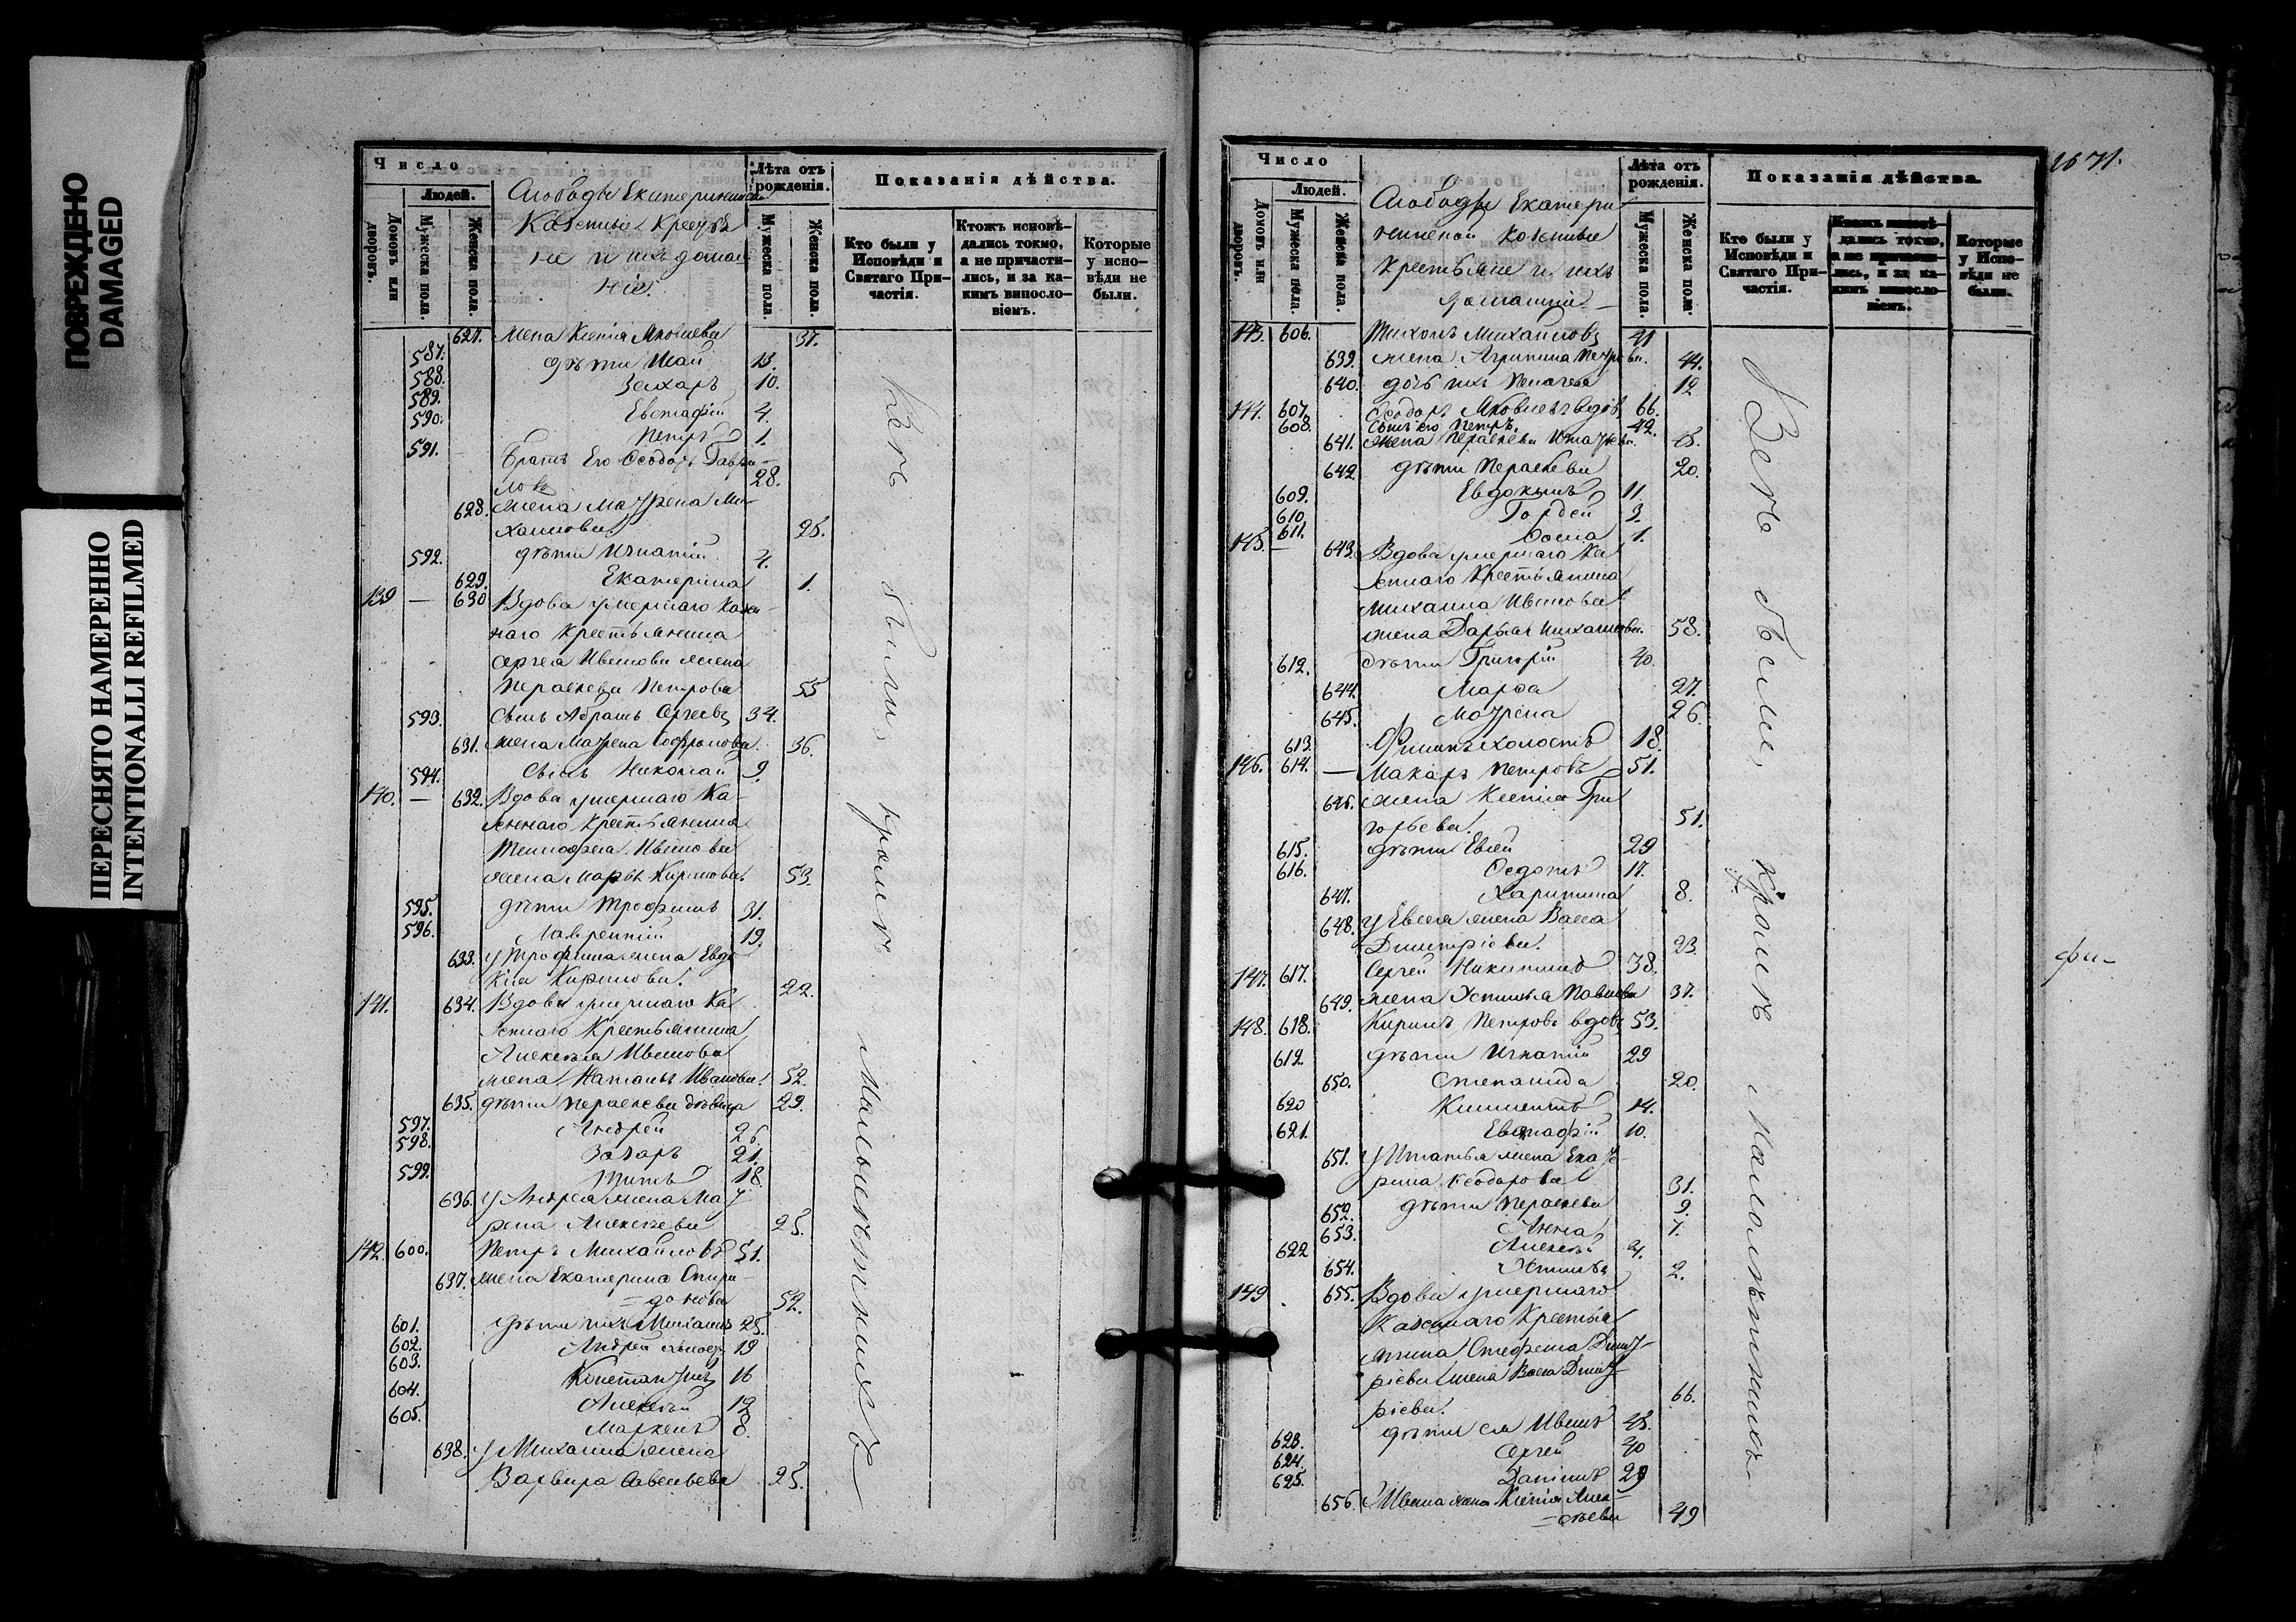 ПОВРЕЖДЕНО
DAMAGED
ПЕРЕСНЯТО НАМЕРЕННО
INTENTIONALLI REFILMED
Число
Людей.
Домовъ или дворовъ.
Мужеска пола.
Женска пола.
Слободы Екатерининской
Казенные Крестья
не и ихъ домаш
ніе.
Лѣта отъ рожденія.
Мужеска пола.
Женска пола.
Показанія дѣйства.
Кто были у Исповѣди и Святаго Причастія.
Ктожъ исповѣдались токмо, а не причастились, и за какимъ винословіемъ.
Которые у исповѣди не были.
627. жена Ксенія Яковлева 37.
587. дѣти Исай 13.
588. Захаръ 10.
589. Евстафій 4.
590. Петръ 1.
591. Братъ Его Ѳеодоръ Гаври-
ловъ 28.
628. жена Матрена Ми-
хаилова 25.
592. дѣти Игнатій 4.
629. Екатерина 1.
139 — 630 Вдова умершаго Казен-
наго Крестьянина
Сергея Иванова жена
Параскева Петрова 55
593. Сынъ Абрамъ Сергеевъ 34.
631. жена Матрена Софронова 36.
594. Сынъ Николай 9.
140. — 632. Вдова умершаго Ка-
зеннаго Крестьянина
Тимофея Иванова
жена Марѳа Кирилова 53.
595. дѣти Трофимъ 31.
596. Лаврентій 19.
633. у Трофима жена Евдо
кія Кирилова 22.
141. 634. Вдова умершаго Ка
зеннаго Крестьянина
Алексѣя Иванова
жена Наталья Иванова 52.
635. дѣти Параскева дѣвица 29.
597. Андрей 26.
598. Захаръ 21.
599. Титъ 18.
636. у Андрея жена Мат
рена Алексѣева 25.
142. 600. Петръ Михайловъ 51.
637. жена Екатерина Спири-
=донова 52.
601. дѣти ихъ Михаилъ 25.
602. Андрей 19
603. Константинъ 16
604. Алексѣй 12
605. Маркелъ 8.
638. у Михаила жена
Варвара Савельева 25.
Всѣ были, кромѣ малолѣтнихъ
Число
Людей.
Домовъ или дворовъ.
Мужеска пола.
Женска пола.
Слободы Екатери
нинской Казенные
Крестьяне и ихъ
домашніе
Лѣта отъ рожденія.
Мужеска пола.
Женска пола.
Показанія дѣйства.
Кто были у Исповѣди и Святаго Причастія.
Ктожъ исповѣдались токмо, а не причастились, и за какимъ винословіемъ.
Которые у Исповѣди не были.
1671.
143. 606. Тихонъ Михайловъ 41
639. жена Агрипина Петрова 44.
640. дочь ихъ Пелагея 12
144. 607. Ѳеодоръ Яковлевъ вдовъ 66.
608. Сынъ его Петръ. 42.
641. жена Параскева Игнатьева
642. дѣти Параскева 20.
609. Евдокимъ 11.
610. Гордей 3.
611. Ѳома 1.
145. — 643. Вдова умершаго Ка
зеннаго Крестьянина
Михаила Иванова
жена Дарья Михайлова 58.
612. дѣти Григорій 40.
644. Марѳа 27.
645. Матрена 26.
613. Филипъ холостъ 18.
146. 614. — Макаръ Петровъ 51.
646. жена Ксенія Гри
горьева. 51.
615. дѣти Евсей 29
616. Ѳедотъ 17.
647. Харитина 8.
648. у Евсея жена Васса
Димитріева. 23.
147. 617. Сергей Никитинъ 38.
649. жена Устинья Павлова 37.
148. 618. Кирилъ Петровъ вдовъ 53.
619. дѣти Игнатій 29
650. Степанида 20.
620 Климентъ 14.
621. Евстафій 10.
651. у Игнатья жена Екате-
рина Ѳеодорова 31.
652. дѣти Параскева 9.
653. Анна 7.
622 Алексѣй 4.
654. Устинья 2.
149 655. Вдова умершаго
Казеннаго Крестья
нина Стефана Димит-
ріева жена Васса Димит
ріева. 66.
623. дѣти ея Иванъ 48.
624. Сергей 40
625. Даніилъ 29
656. У Ивана жена Ксенія Алек-
=сѣева 49
Всѣ были, кромѣ малолѣтнихъ
фи-